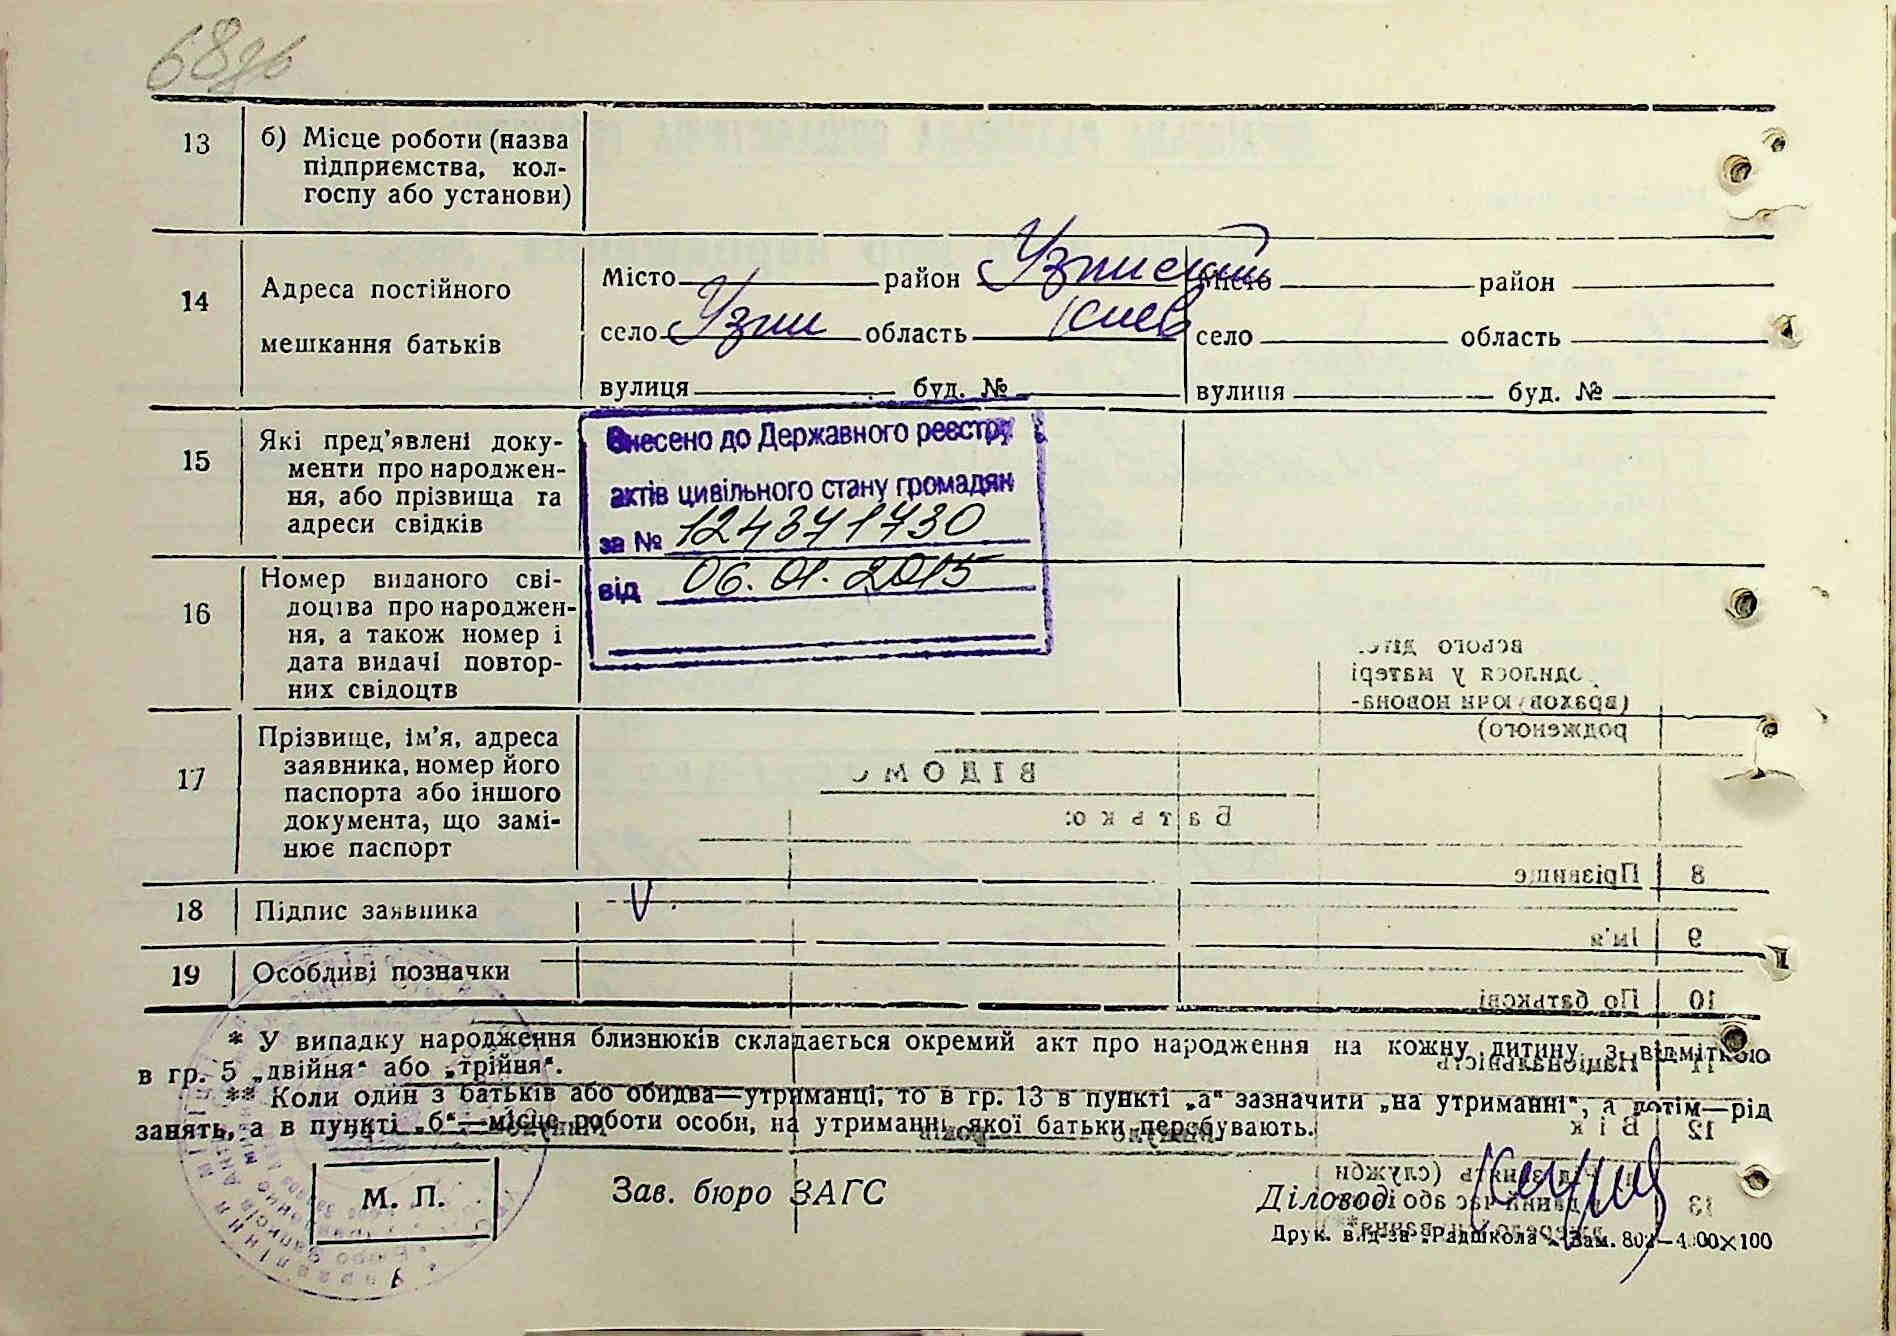 13 б) Місце роботи (назва
підприємства, кол-
госпу або установи)
14 Адреса постійного
мешкання батьків
Місто район Узинский
село Узин область Киев
вулиця буд. №
Місто район
село область
вулиця буд. №
15 Які пред'явлені доку-
менти про народжен-
ня, або прізвища та
адреси свідків
Внесено до Державного реєстру
актів цивільного стану громадян
за № 124371730
від 06.01.2015
16 Номер виданого сві-
доцтва про народжен-
ня, а також номер і
дата видачі повтор-
них свідоцтв
всього дітей
родилося у матері
(враховуючи новона-
родженого)
17 Прізвище, ім'я, адреса
заявника, номер його
паспорта або іншого
документа, що замі-
нює паспорт
ВІДОМО
Батько:
8 Прізвище
18 Підпис заявника V
9 Ім'я
19 Особливі позначки
10 По батькові
* У випадку народження близнюків складається окремий акт про народження на кожну дитину з відміткою
в гр. 5 „двійня“ або „трійня“.
11 Національність
** Коли один з батьків або обидва—утриманці, то в гр. 13 в пункті „а“ зазначити „на утриманні“, а потім—рід
занять, а в пункті „б“—місце роботи особи, на утриманні якої батьки перебувають.
12 Вік
М. П.
Зав. бюро ЗАГС
Діловод
13
Друк. вид-ва „Радшкола“.